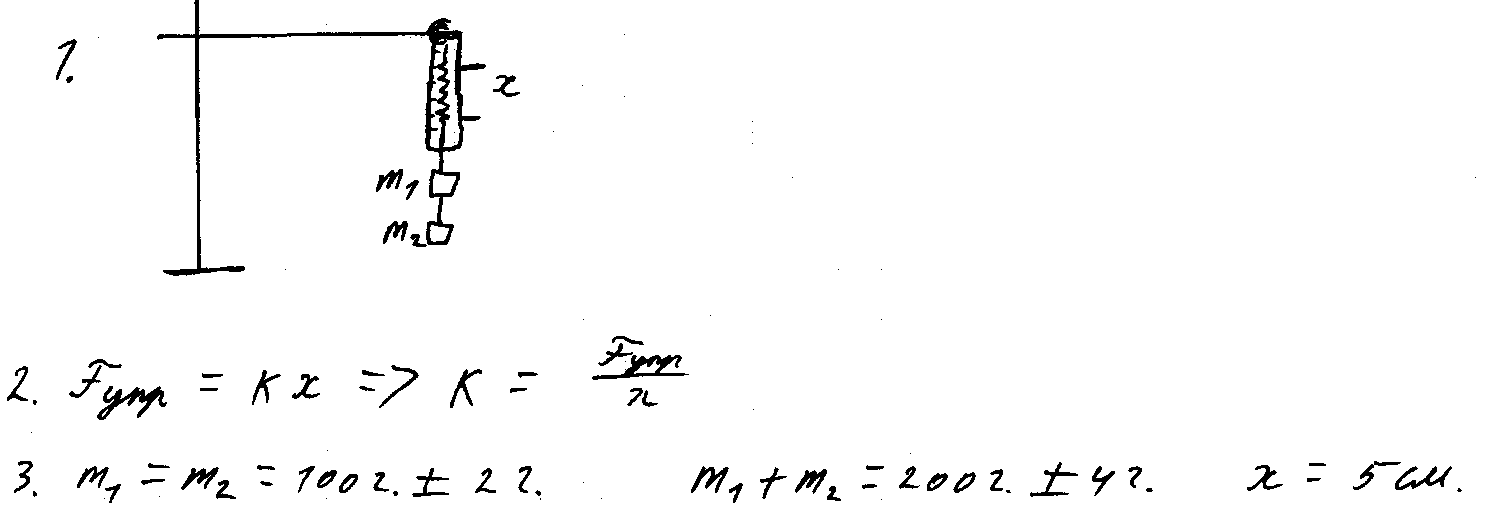 1.
x
m₁
m₂
2. Fупр = кx => к = Fупр/x
3. m₁ = m₂ = 100 г. ± 2 г. m₁ + m₂ = 200 г. ± 4 г. x = 5 см.